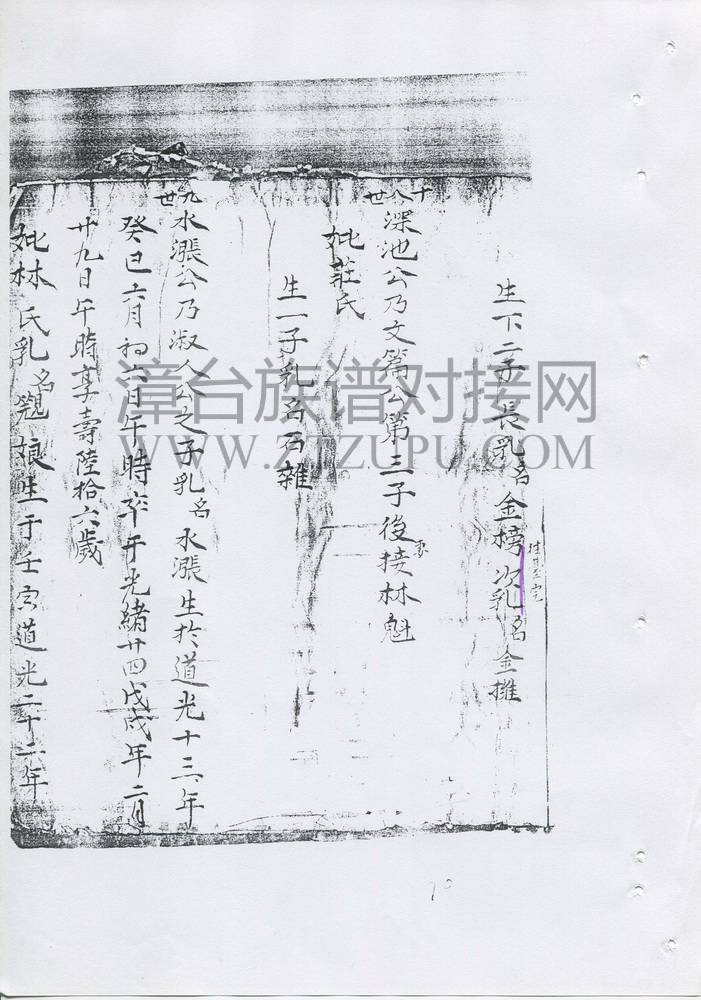 生下二子長乳名金榜次乳名金攡
十八世
深池公乃文篇公第三子後接林魁
妣莊氏
生一子乳名石雜
九世
水漲公乃淑人公之子乳名水漲生於道光十三年
癸巳六月初六日午時卒于光緒廿四戊戌年二月
廿九日午時享壽陸拾六歲
妣林氏乳名娘生于壬寅道光二十二年
漳台族谱对接网
WWW.ZTZUPU.COM
10